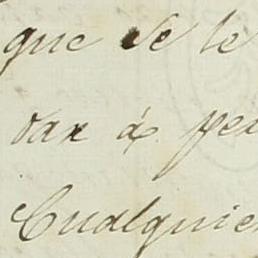 que se le
dar á per
Cualquier